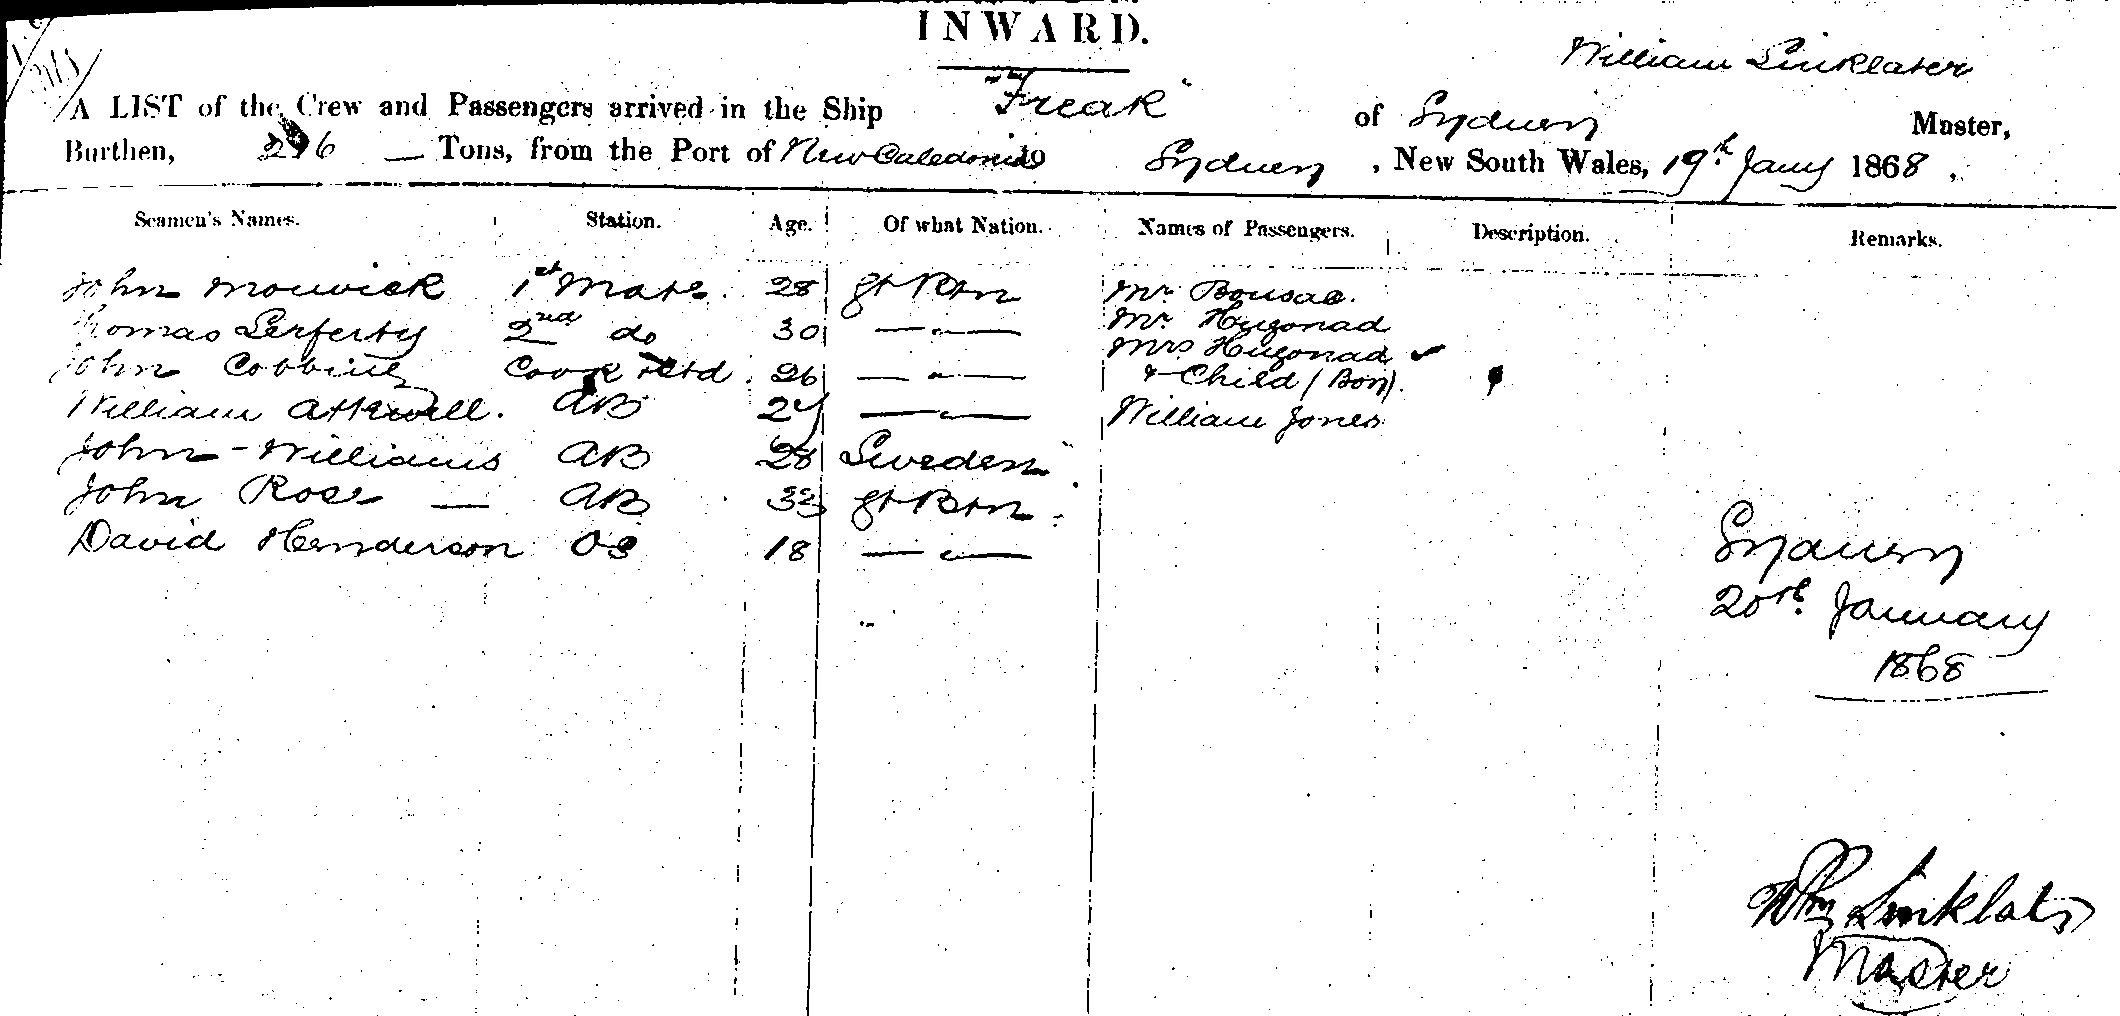 INWARD.
William Linklater
A LIST of the Crew and Passengers arrived in the Ship "Freak" of Sydney Master,
Burthen, Tons, from the Port of New Caledonia Sydney, New South Wales, 19th Jany 1868.
Seamen's Names. Station. Age. Of what Nation. Names of Passengers. Description. Remarks.
John Mouwick 1st Mate. 28 Gt Brtn Mr Bousac.
Thomas Lerferty 2nd do 30 — " — Mr Hugonad
Mrs Hugonad
John Cook 26 — " — & Child (Boy).
William Atkwell. AB — " — William Jones
John - Williams AB 28 Sweden
John Rose — AB 33 Gt Brtn
David Henderson OS 18 — " —
Sydney
20th January
1868
Wm Linklater
Master